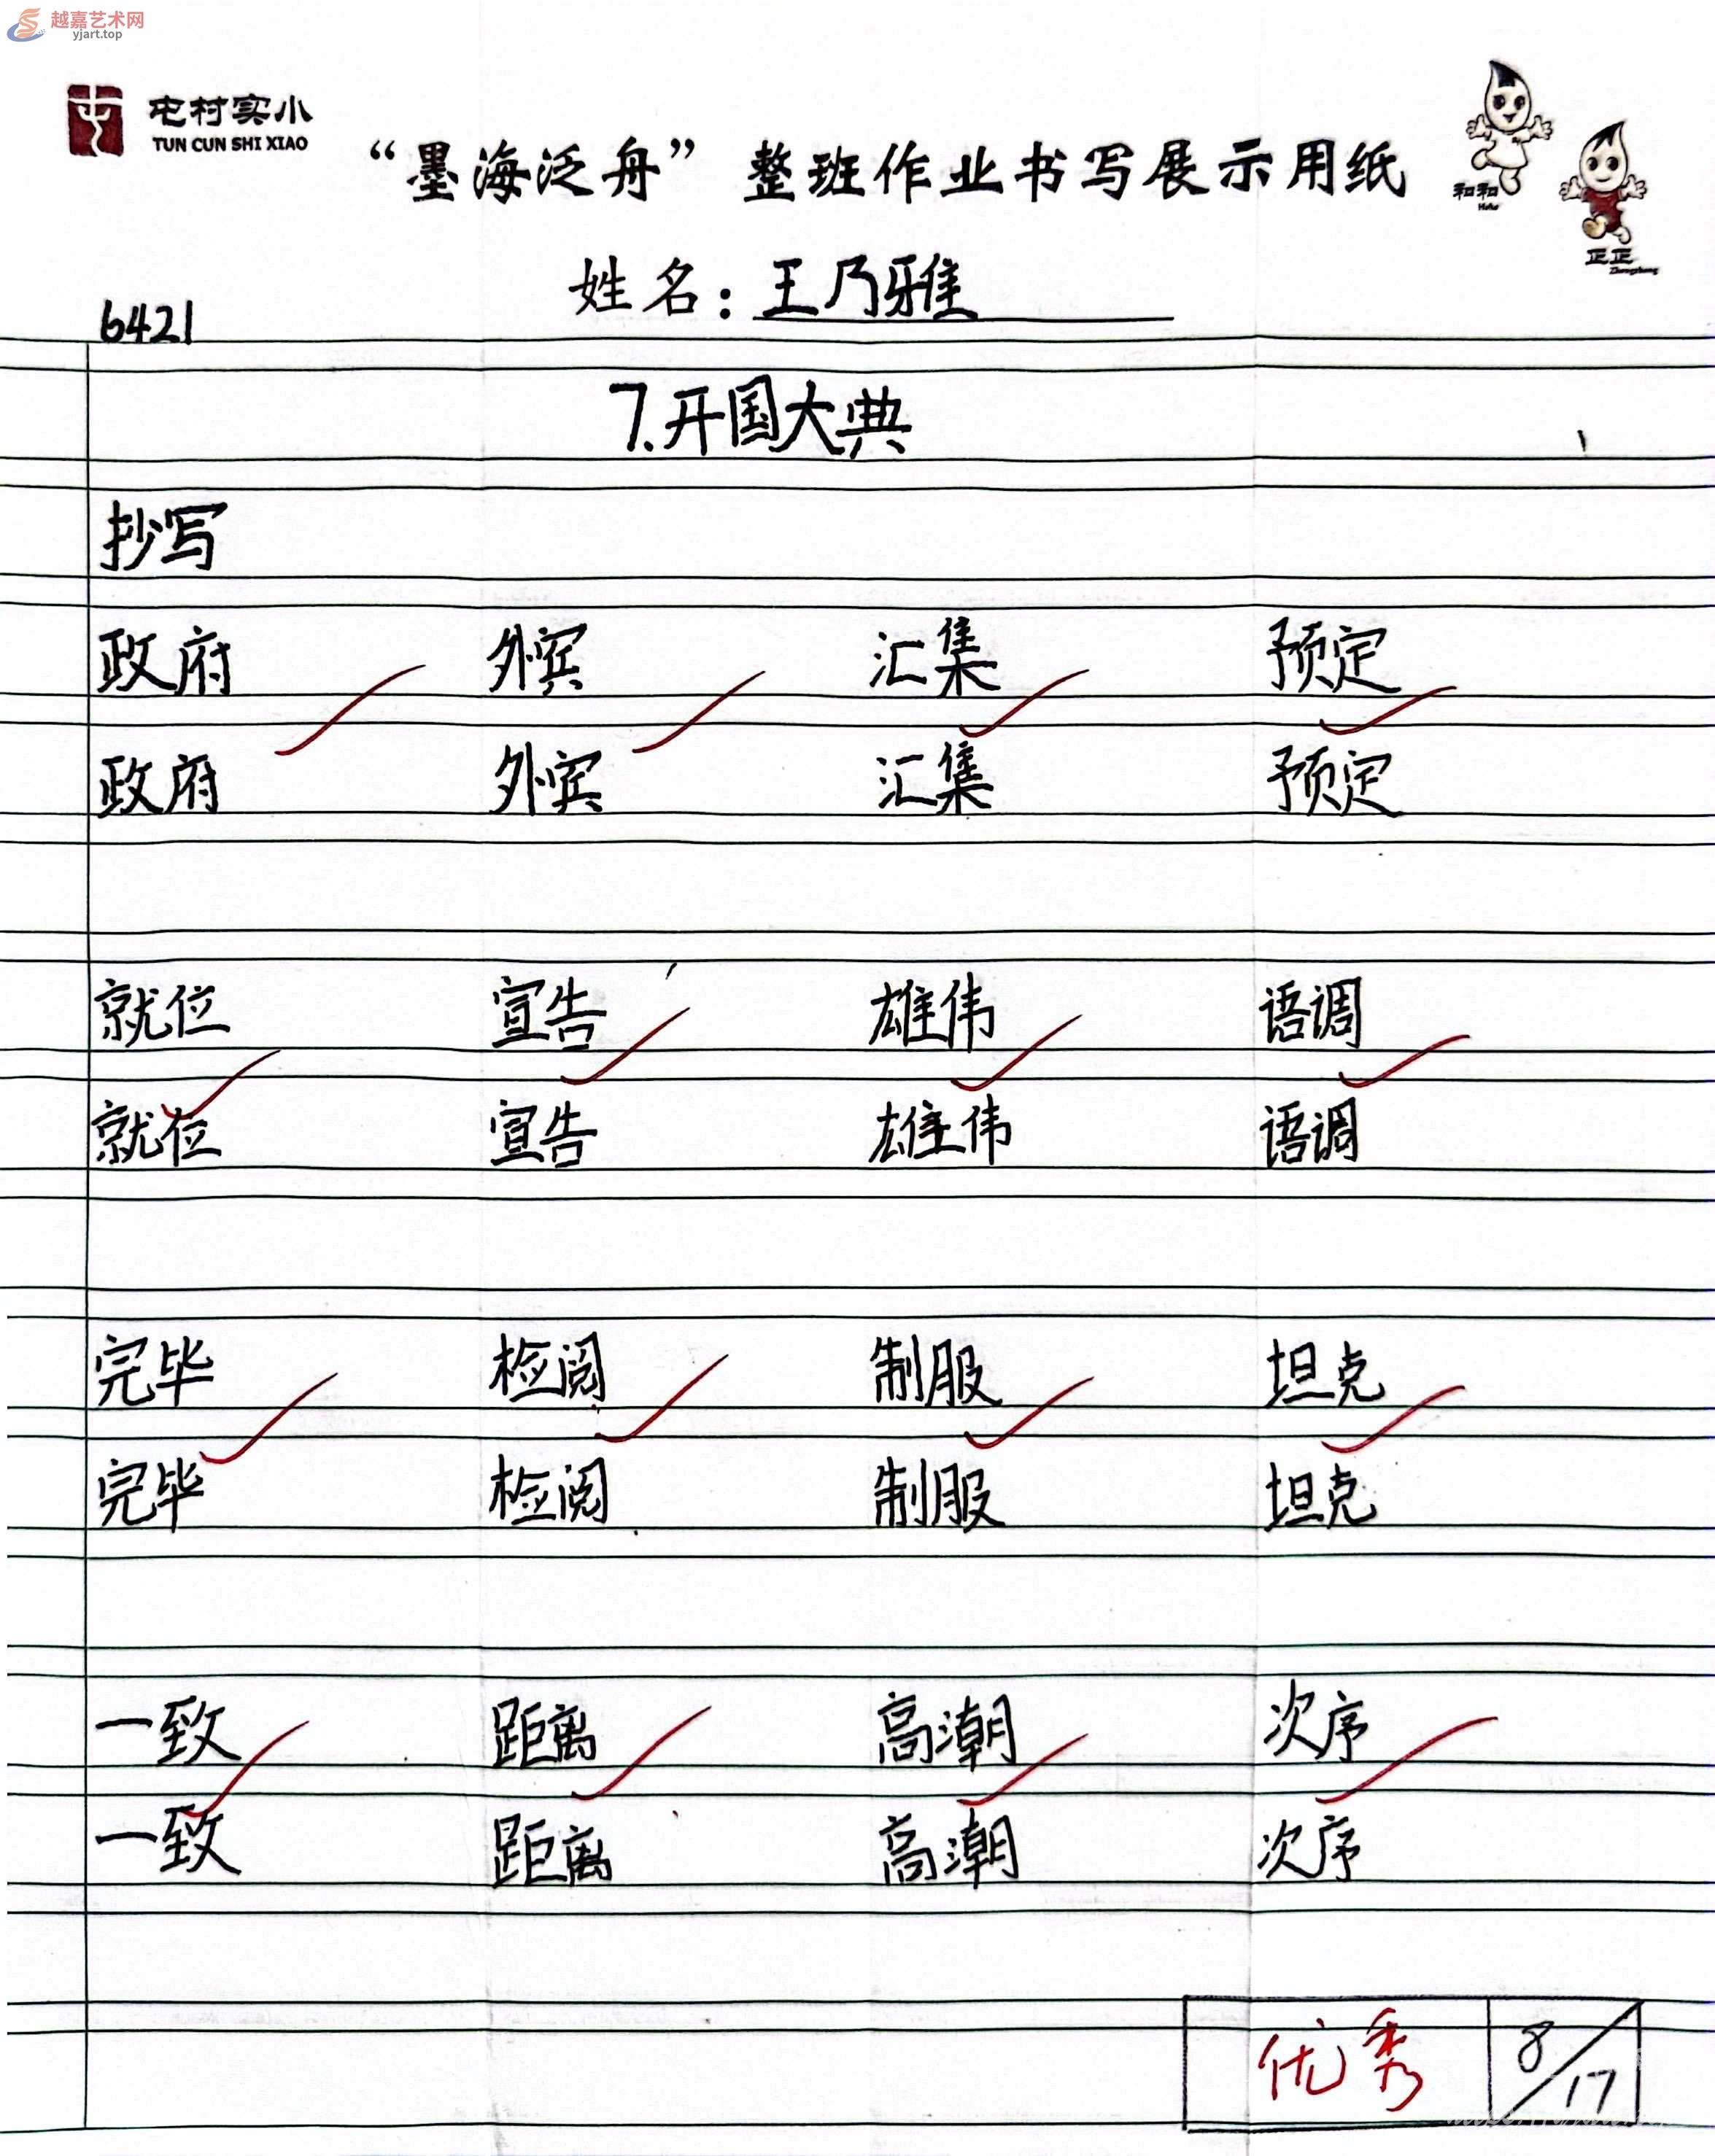 越嘉艺术网
yjart.top
屯村实小
TUN CUN SHI XIAO
“墨海泛舟”整班作业书写展示用纸
和和
正正
姓名：王乃雅
6421
7.开国大典
抄写
政府 外宾 汇集 预定
政府 外宾 汇集 预定
就位 宣告 雄伟 语调
就位 宣告 雄伟 语调
完毕 检阅 制服 坦克
完毕 检阅 制服 坦克
一致 距离 高潮 次序
一致 距离 高潮 次序
优秀 8/17